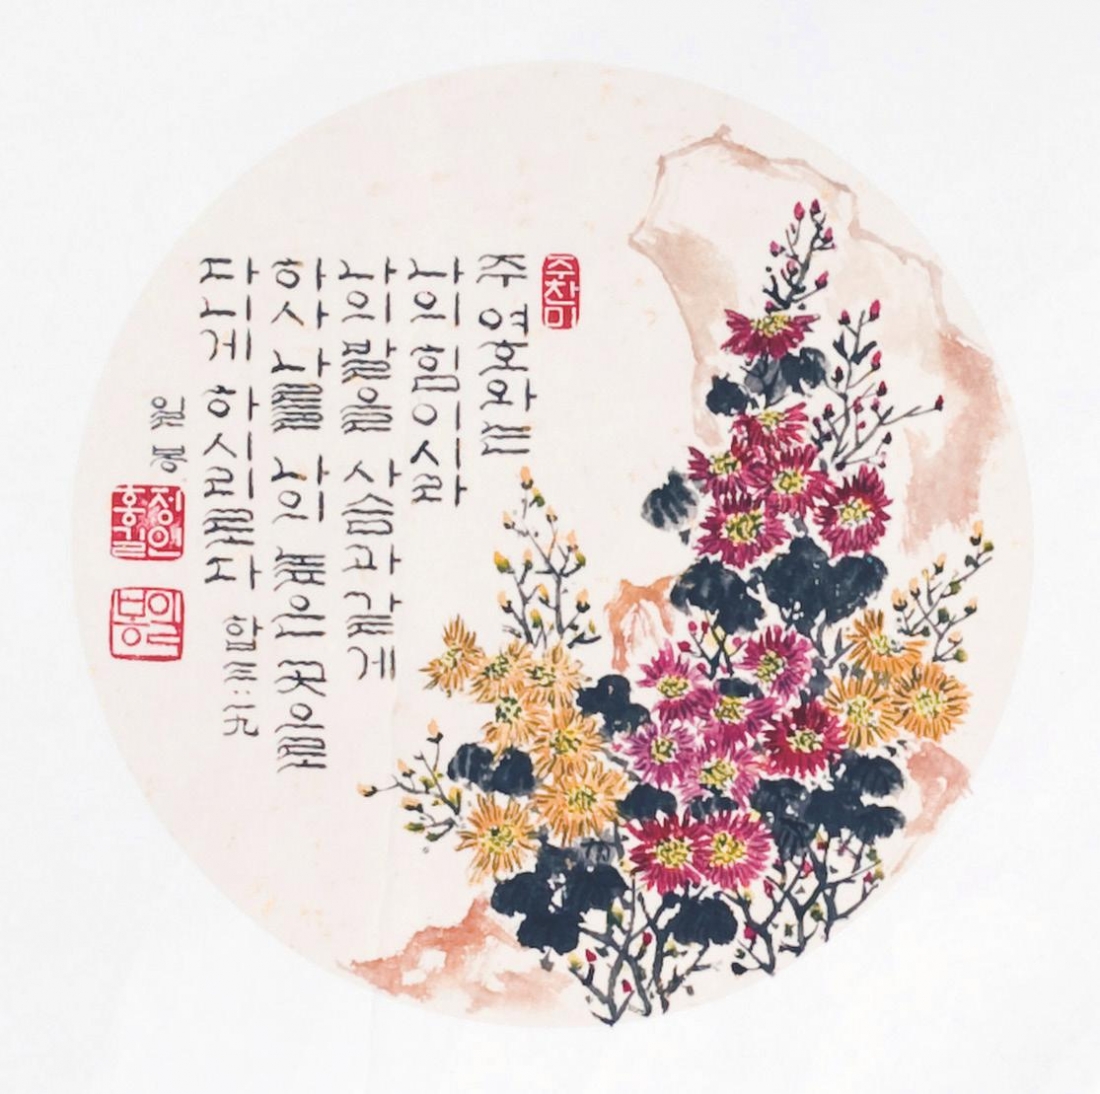 주찬미
주 여호와는
나의 힘이시라
나의 발을 사슴과 같게
하사 나를 나의 높은 곳으로
다니게 하시리로다 합三:一九
일봉
정홍길인
일봉